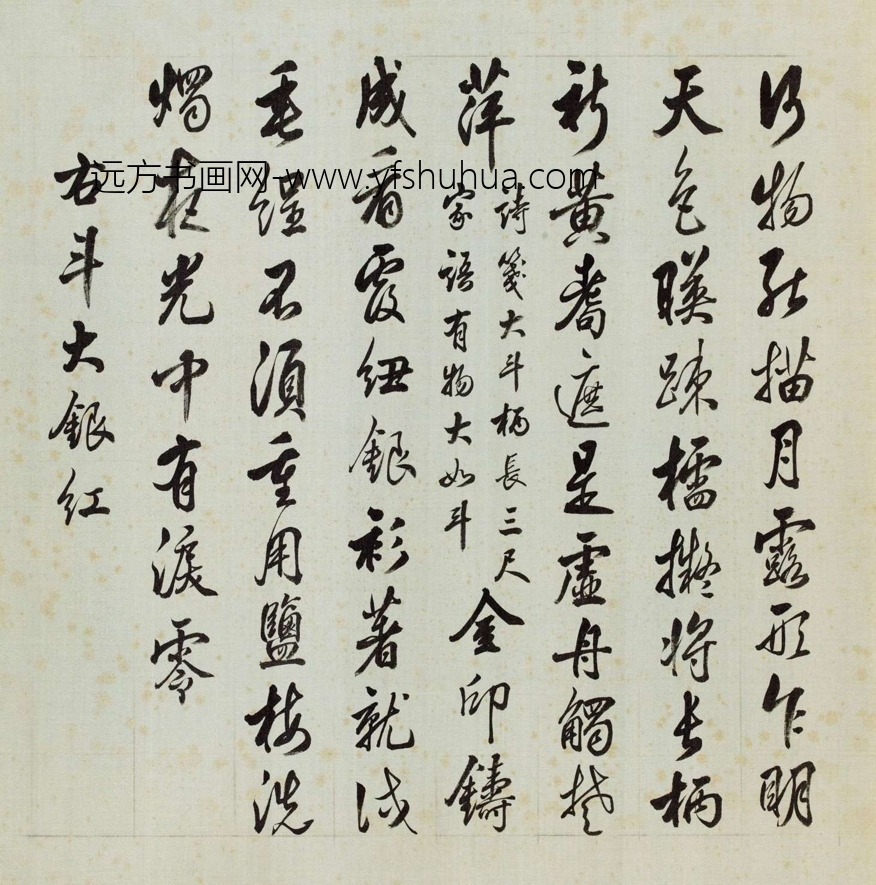 何物能描月露形乍明
天色暎疎櫺擬將長柄
祈黃耆遮是虛舟觸楚
萍
詩箋大斗柄長三尺
家語有物大如斗
金印鑄
成看霞紐銀衫著就伐
毛經不須重用鹽梅洗
燭炬光中有淚零
右斗大銀紅
远方书画网-www.yfshuhua.com